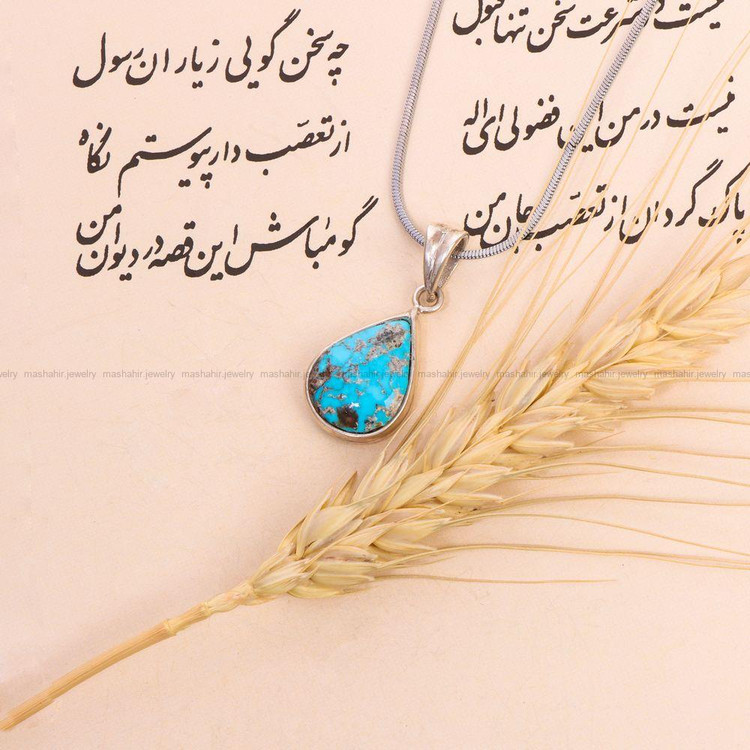 نیست سرعت سخن تنها قبول
چه سخن گویی ز یاران رسول
نیست در من این فضولی ای اله
از تعصب دار پیوستم نگاه
پاک گردان از تعصب جان من
گو مباش این قصه در دیوان من
mashahir.jewelry mashahir.jewelry mashahir.jewelry mashahir.jewelry mashahir.jewelry mashahir.jewelry mashahir.jewelry mashahir.jewelry